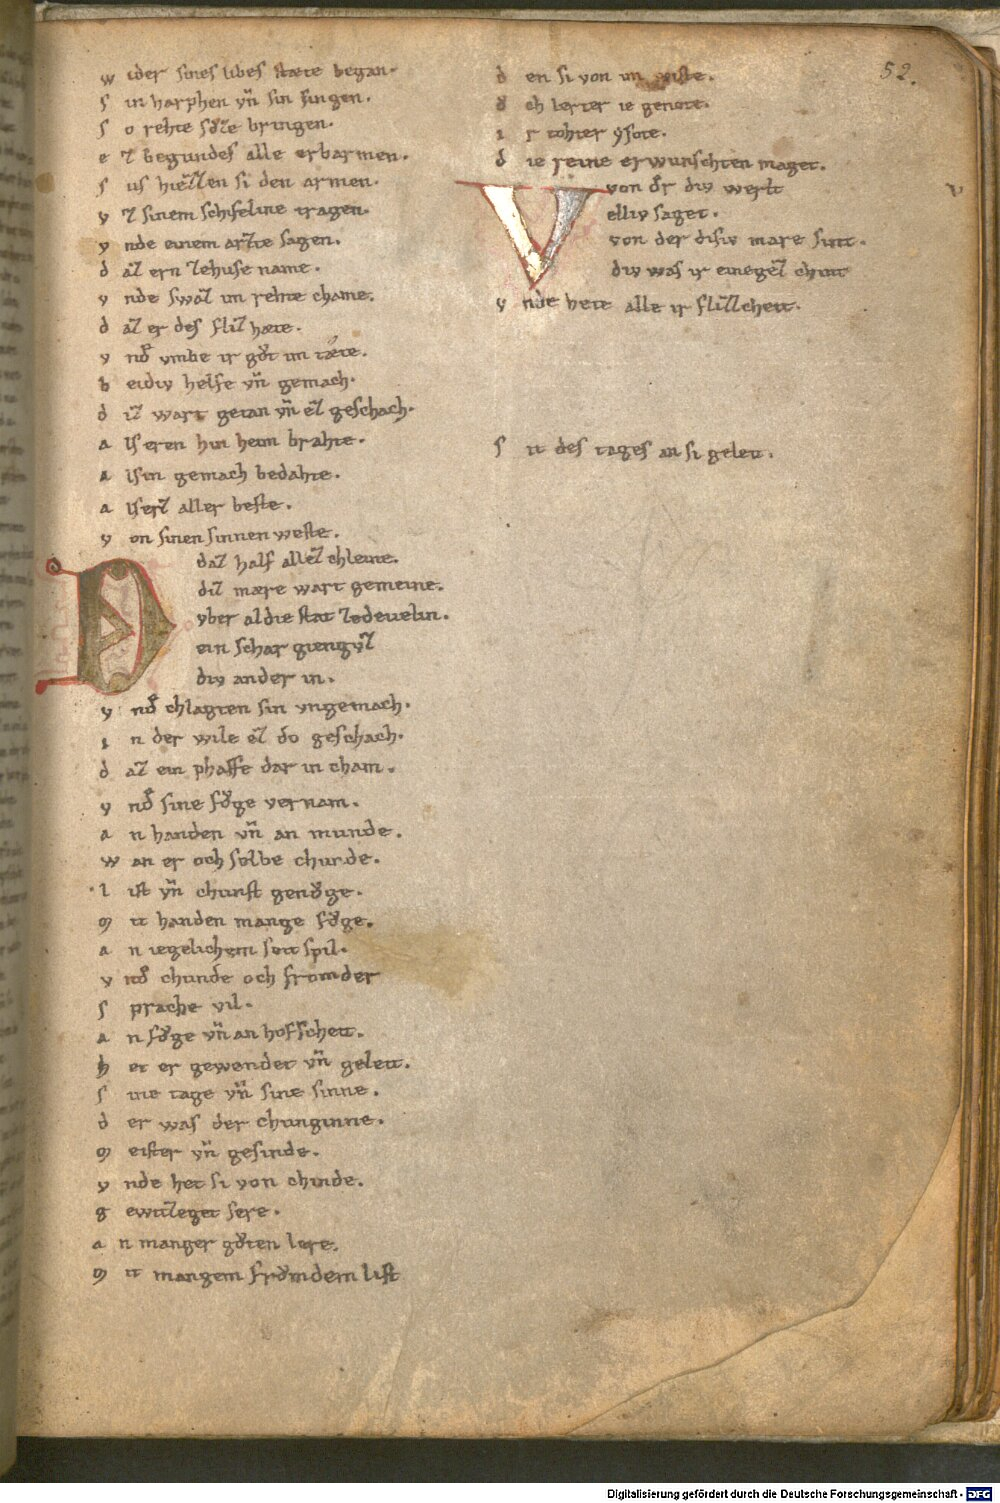 52.
w ider sines libes stæte began·
s in harphen vn̄ sin singen.
s o rehte sůze bringen·
e z begundes alle erbarmen.
s us hiezzen si den armen·
v z sinem schifeline tragen·
v nde einem arzte sagen.
d az ern zehuse name.
v nde swaz im rehte chame.
d az er des fliz hæte.
v nd᷑ vmbe ir gůt im tæte.
b eidiv helfe vn̄ gemach·
d iz wart getan vn̄ ez geschach·
a ls er en hin heim brahte·
a l sin gemach bedahte.
a l serz aller beste.
v on sinen sinnen weste.
D daz half allez chleine.
diz mære wart gemeine.
vber al die stat ze develin.
ein schar gieng vz
div ander in.
v nd᷑ chlagten sin vngemach.
i n der wile ez do geschach·
d az ein phaffe dar in cham.
v nd᷑ sine fůge vernam.
a n handen vn̄ an munde.
w an er och selbe chunde.
l ist vn̄ chunst genůge.
m it handen mange fůge.
a n iegelichem seit spil.
v nd᷑ chunde och fromder
s prache vil.
a n fůge vn̄ an hofscheit.
h et er gewendet vn̄ geleit.
s ine tage vn̄ sine sinne.
d er was der chunginne.
m eister vn̄ gesinde.
v nde het si von chinde.
g ewizleget sere.
a n manger gůten lere.
m it mangem frömdem list
d en si von im wiste.
d ch lerter ie genote.
i r tohter ysote.
d ie reine erwunschten maget.
V von d᷑r div werlt
elliv saget.
von der disiv mære sint.
div was ir einegez chint
v nde hete alle ir flizzcheit.
s it des tages an si geleit.
Digitalisierung gefördert durch die Deutsche Forschungsgemeinschaft - DFG